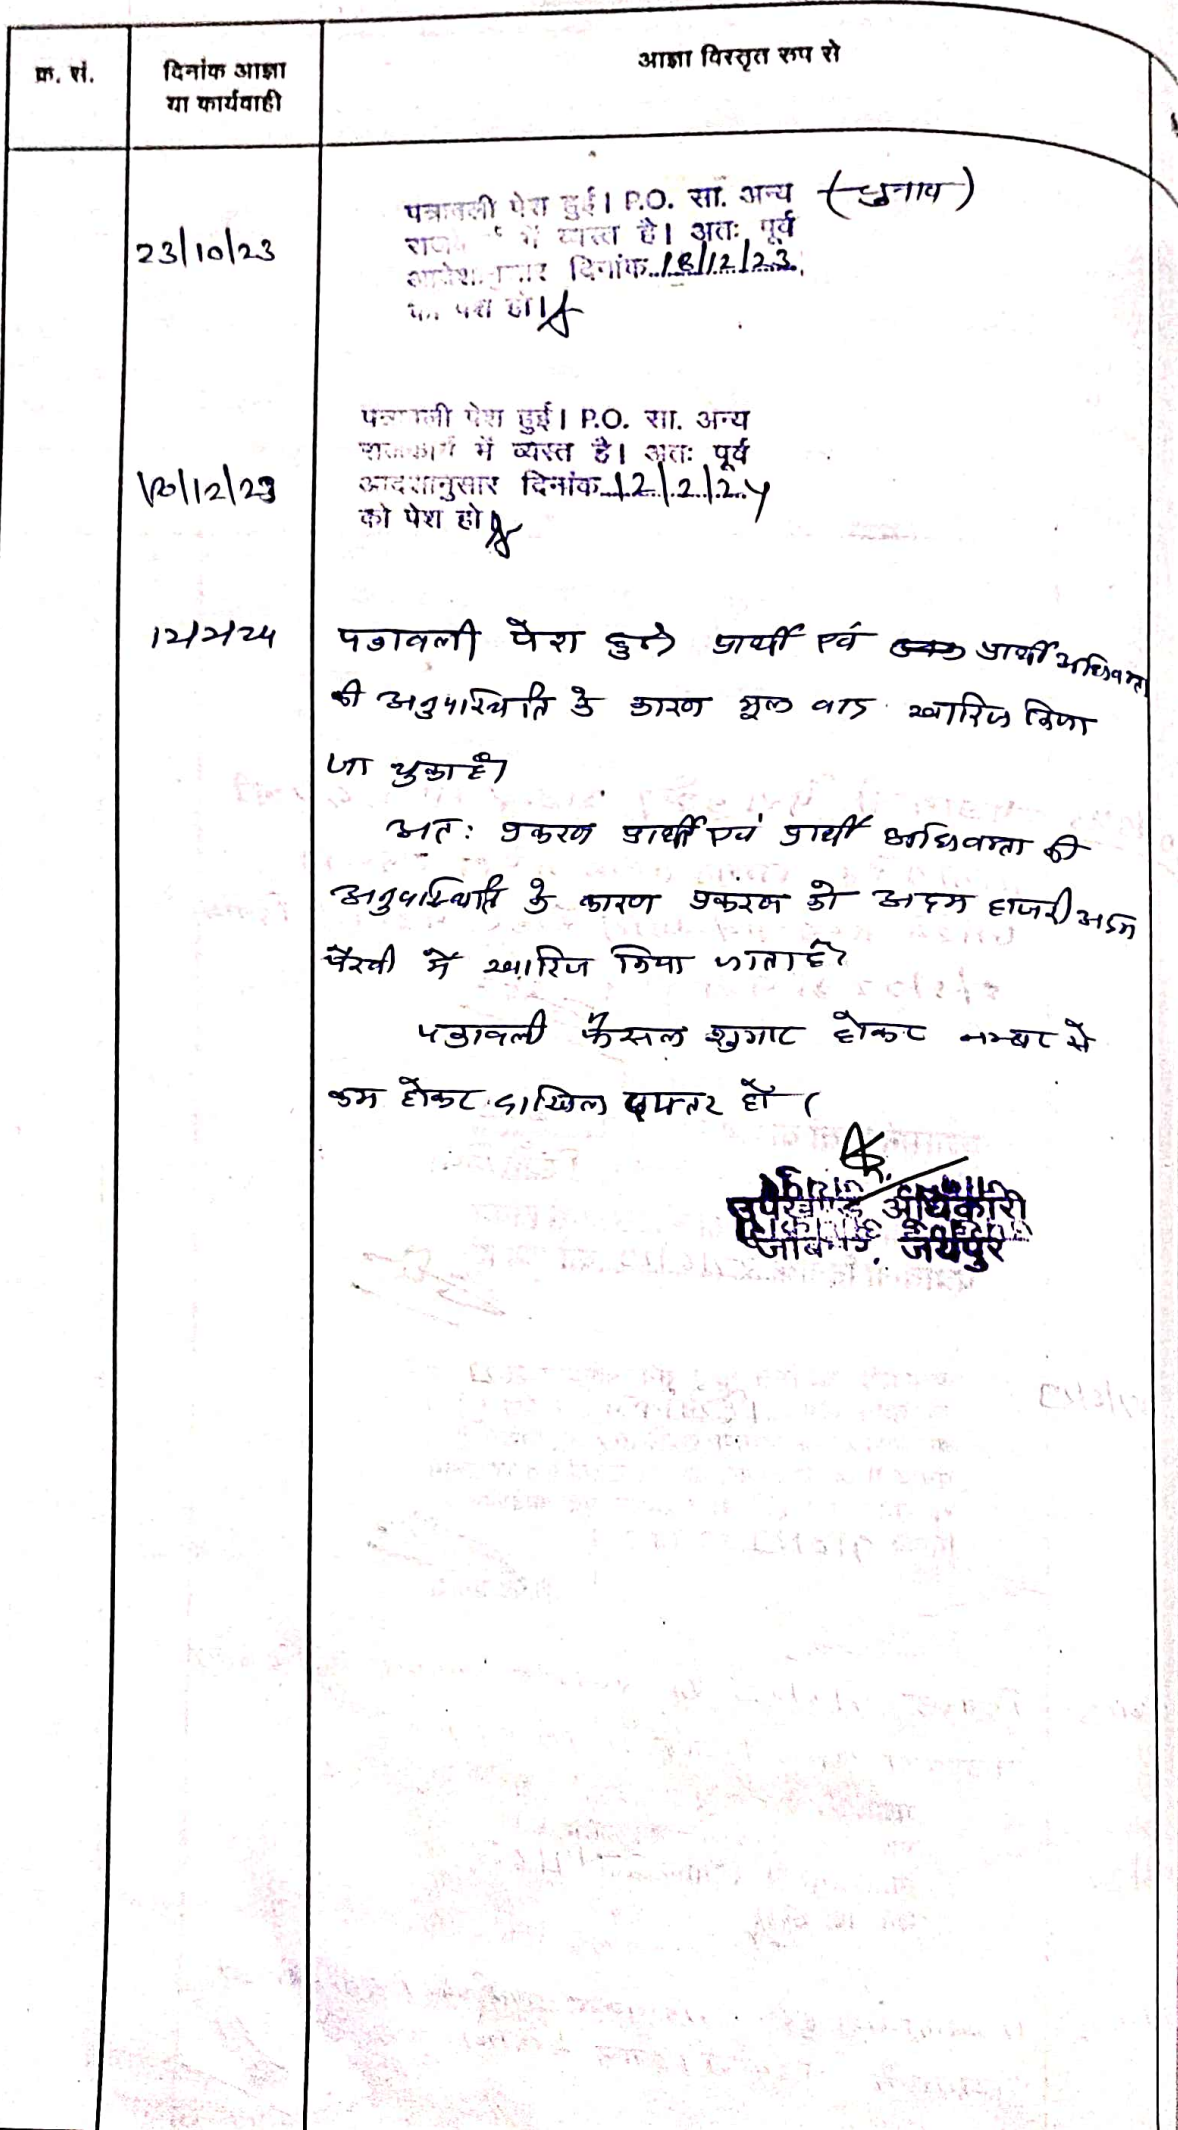 क्र. सं.
दिनांक आज्ञा
या कार्यवाही
आज्ञा विस्तृत रूप से
23/10/23
पत्रावली पेश हुई। P.O. सा. अन्य (चुनाव)
में व्यस्त है। अतः पूर्व
आदेशानुसार दिनांक 18/12/23
को पेश हो।
18/12/23
पत्रावली पेश हुई। P.O. सा. अन्य
राजकार्य में व्यस्त है। अतः पूर्व
आदेशानुसार दिनांक 12/2/24
को पेश हो
12/2/24
पत्रावली पेश हुई प्रार्थी एवं प्रार्थी अधिवक्ता
की अनुपस्थिति के कारण मूल वाद खारिज किया
जा चुका है।
अतः प्रकरण प्रार्थी एवं प्रार्थी अधिवक्ता की
अनुपस्थिति के कारण प्रकरण को अदम हाजरी अदम
पैरवी में खारिज किया जाता है।
पत्रावली फैसल शुमार होकर नम्बर से
कम होकर दाखिल दफ्तर हो।
उपखण्ड अधिकारी
जयपुर